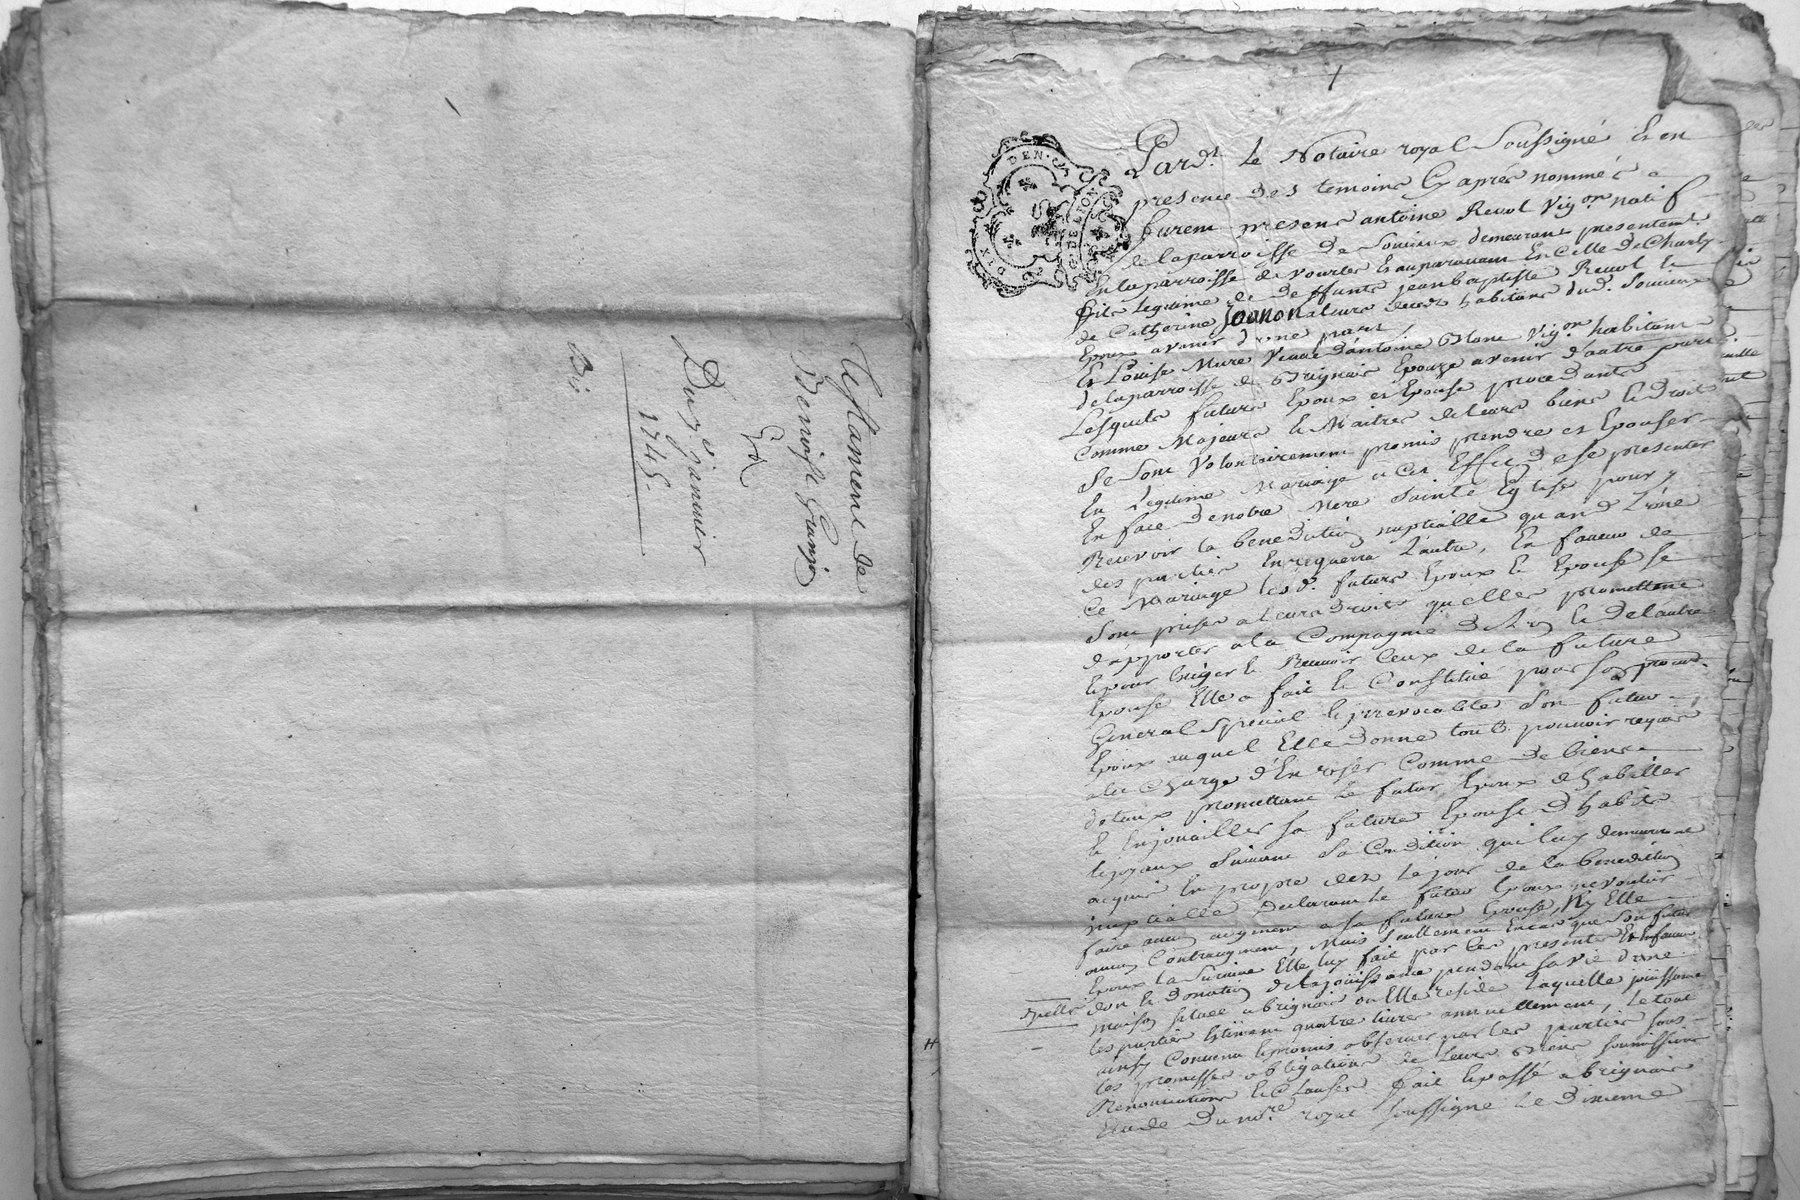 Testament de
Benoist Granjon
Du 7e janvier
1745.
DIX DEN.
G. DE LYON
Pard.t le Notaire royal Soussigné & en
presence des temoins Cy aprés nommés
furent presens antoine Revol Vig.on natif
de la parroisse de Soucieux demeurant presentem.t
En la parroisse de vourles & auparavant En Celle de Charly
fils Legitime de deffunts jean baptiste Revol &
de Catherine Joanon habitans dud. Soucieux
Epoux avenir d'une part,
Et Louise Mure Veuve d'antoine Vig.on habitante
de la parroisse de Brignais Epouze avenir d'autre part
Lesquels futurs Epoux et Epouse procedants
Comme Majeurs & Maitres de leurs biens & Droits
Se Sont Volontairement promis prendre et Epouser
En Legitime Mariage a cet Effet de se presenter
En face de notre Mere Sainte Eglise pour y
Recevoir la benediction nuptialle quand L'une
des parties En requerra L'autre, En faveur de
Ce Mariage lesd. futurs Epoux & Epouse se
Sont prises a leurs Droits qu'elles promettent
d'apporter a la Compagnie de L'un & de L'autre
& pour Exiger & Recevoir Ceux de la future
Epouse Elle a fait & Constitué pour Son procur.
General Special & irrevocable Son futur
Epoux auquel Elle donne tout pouvoir requis
a la Charge d'En user Comme de biens
dotaux promettant le futur Epoux d'habiller
& Enjouailler Sa future Epouse d'habits
& joyaux Suivant Sa Condition qui luy demeureront
acquis En propre dez le jour de la benediction
nuptialle Declarant le futur Epoux ne vouloir
faire aucun augment a sa future Epouse, Ny Elle
aucun Contraugment, Mais Seullement En cas que Son futur
Epoux la Survive Elle luy fait par Ces presentes
don & Donation de la joüissance pendant Sa vie d'une
maison Située a brignais ou Elle reside Laquelle joüissance
les parties Estiment quatre livres annuellement, Le tout
ainsy Convenu & promis observer par les parties sous
les promesses obligations de leurs Biens Soumissions
Renonciations & Clauses fait & passé a brignais
Etude du no.re royal Soussigné Le Dixieme